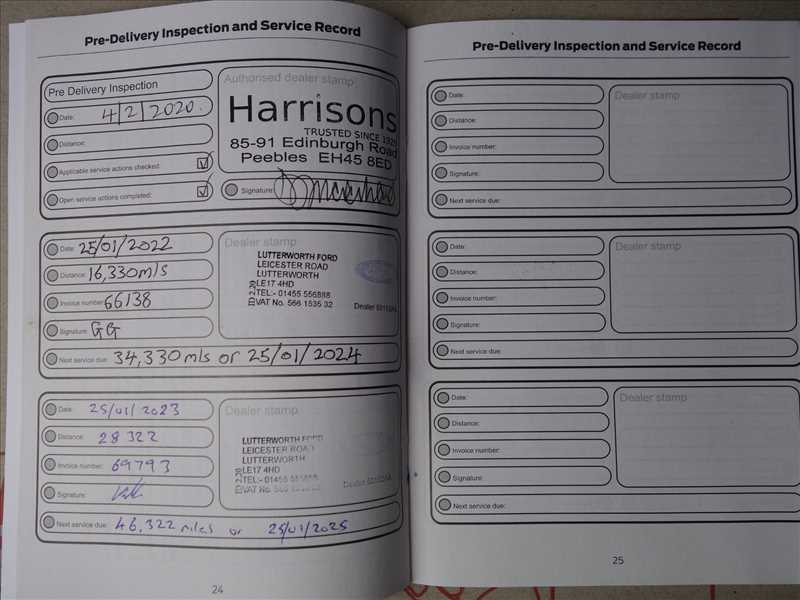 Pre-Delivery Inspection and Service Record
Pre Delivery Inspection
Date: 4/2/2020.
Distance:
Applicable service actions checked: ☑
Open service actions completed: ☑
Authorised dealer stamp
Harrisons
TRUSTED SINCE
85-91 Edinburgh Road
Peebles EH45 8ED
Signature:
Date: 25/01/2022
Distance: 16,330mls
Invoice number: 66138
Signature: GG
Next service due: 34,330 mls or 25/01/2024
Dealer stamp
LUTTERWORTH FORD
LEICESTER ROAD
LUTTERWORTH
LE17 4HD
TEL:- 01455 556888
VAT No. 566 1535 32
Dealer
Date: 25/01/2023
Distance: 28322
Invoice number: 69793
Signature:
Next service due: 46,322 miles or 25/01/2025
Dealer stamp
LUTTERWORTH FORD
LEICESTER ROAD
LUTTERWORTH
LE17 4HD
TEL:- 01455
VAT No. 566
Dealer
24
Pre-Delivery Inspection and Service Record
Date:
Distance:
Invoice number:
Signature:
Next service due:
Dealer stamp
Date:
Distance:
Invoice number:
Signature:
Next service due:
Dealer stamp
Date:
Distance:
Invoice number:
Signature:
Next service due:
Dealer stamp
25